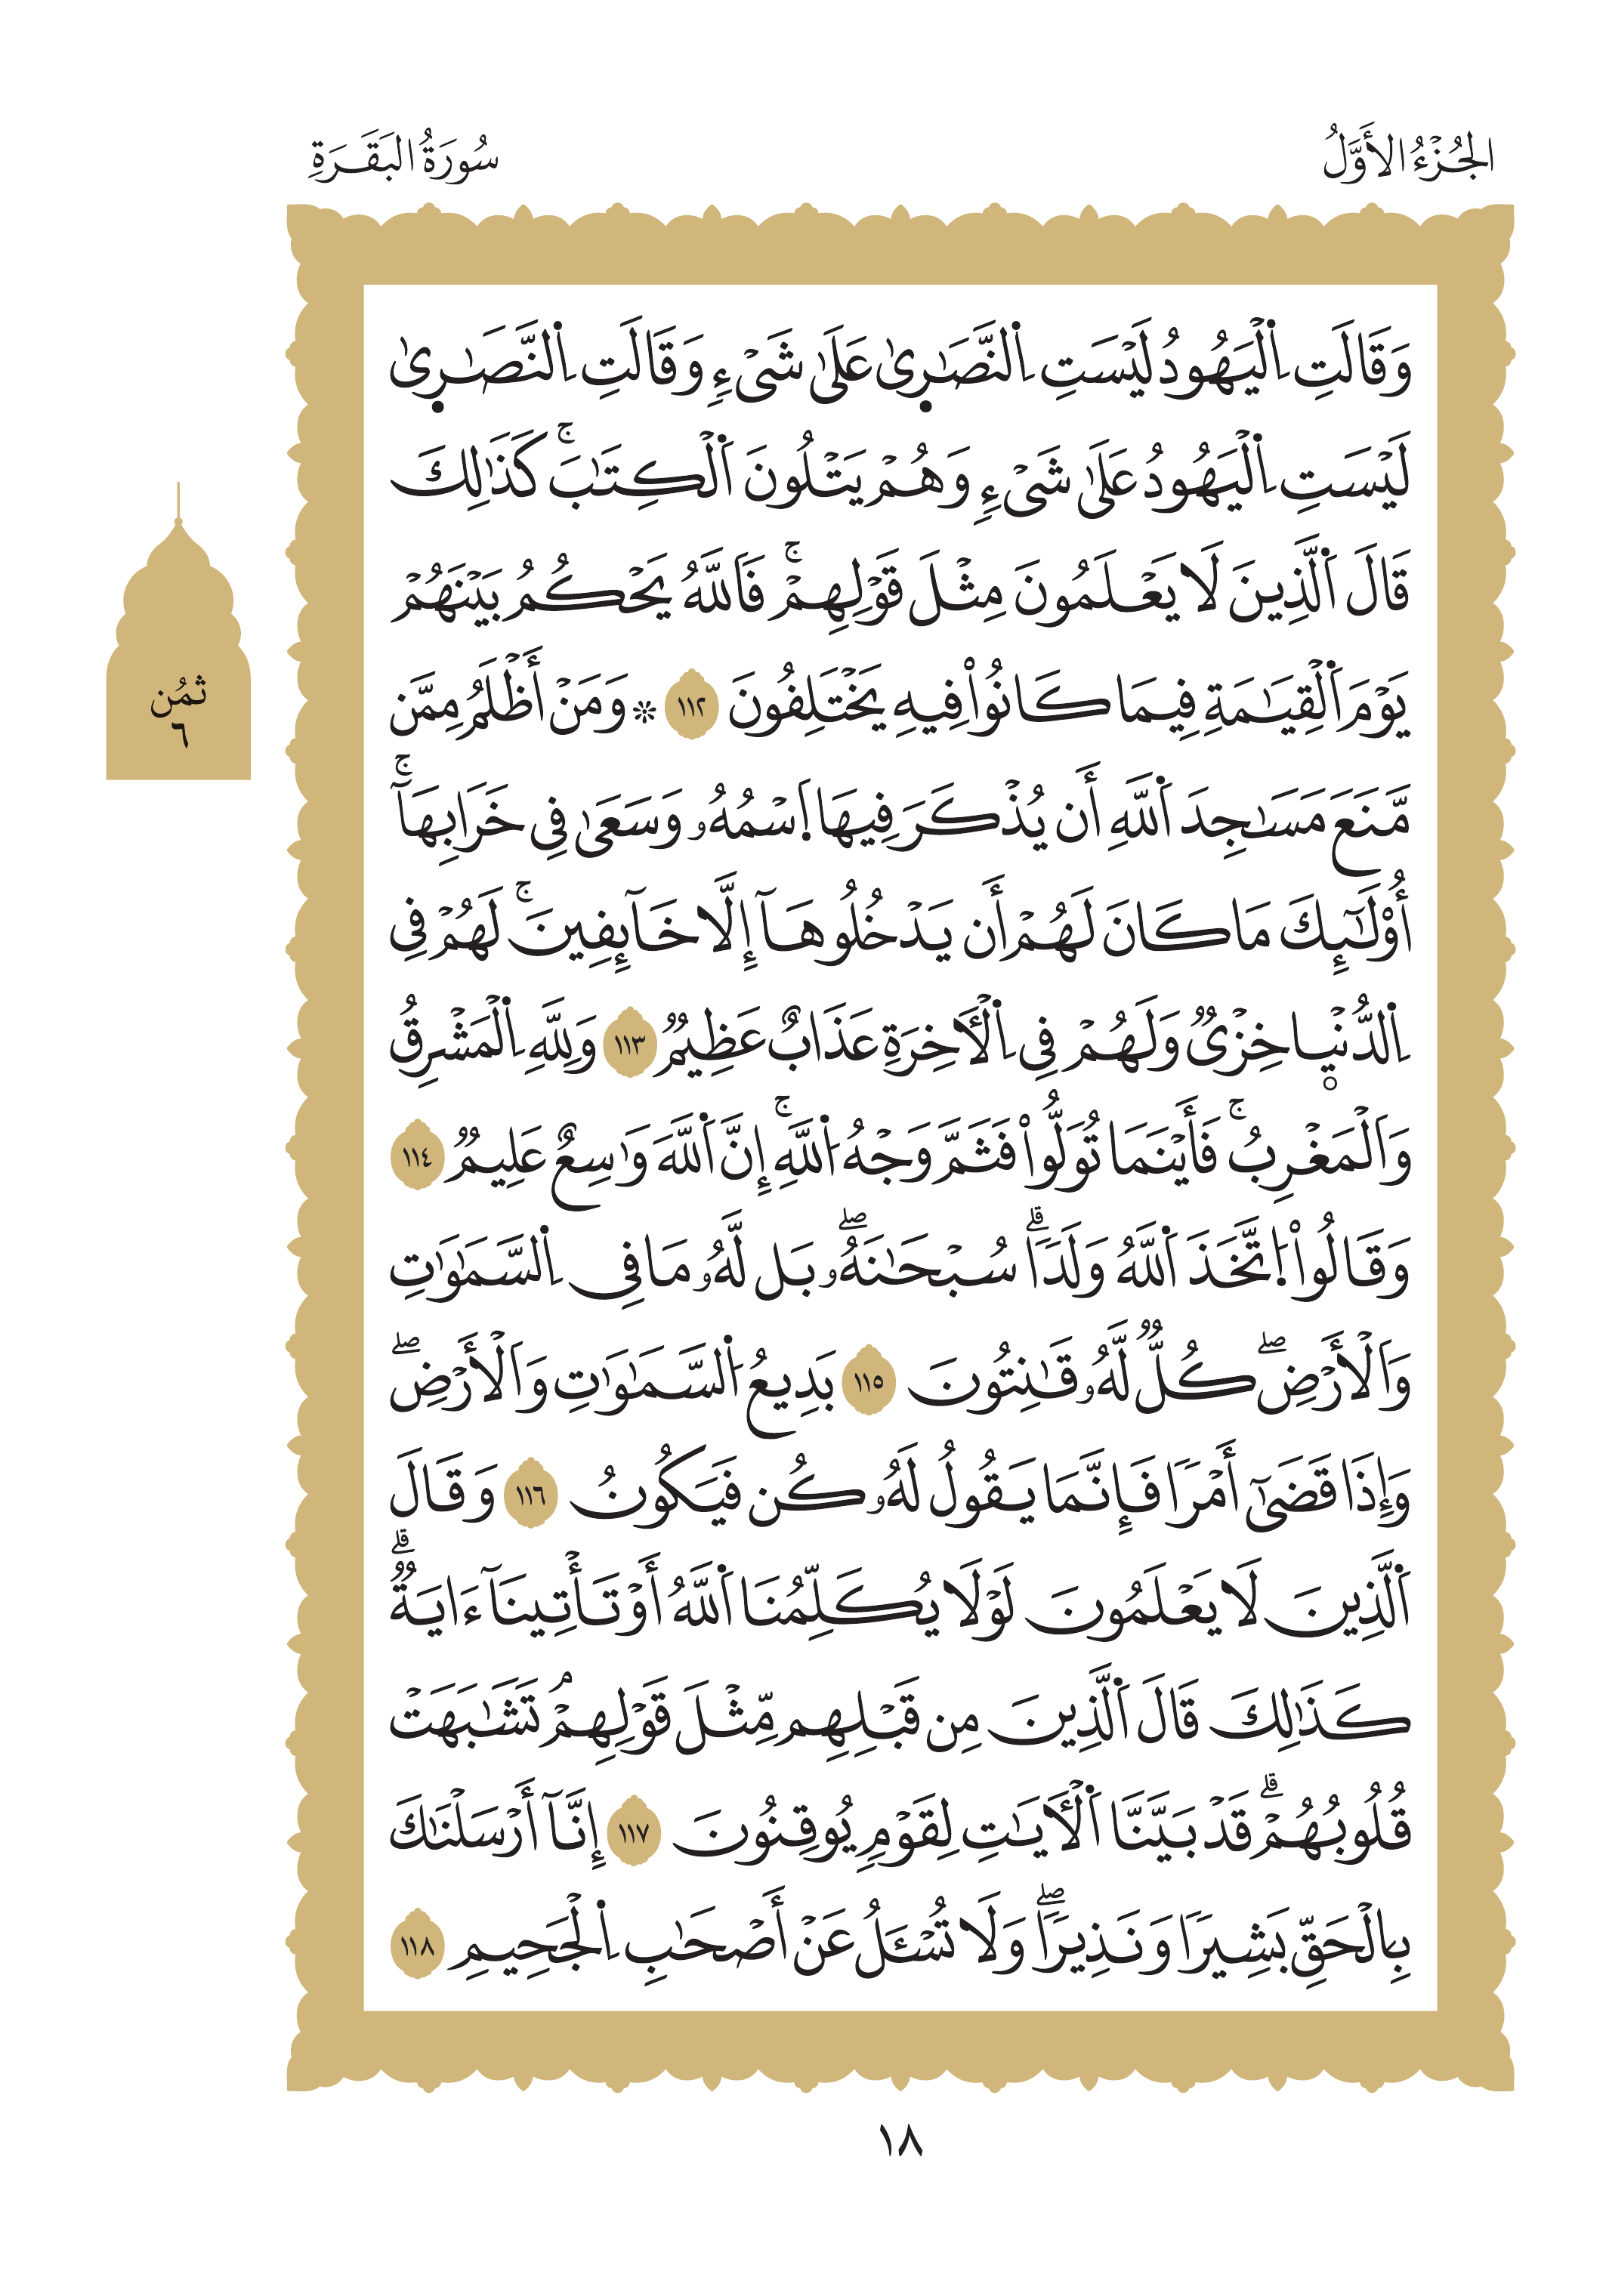 الجُزْءُ الأَوَّلُ
سُورَةُ البَقَرَةِ
وَقَالَتِ اِ۬لْيَهُودُ لَيْسَتِ اِ۬لنَّصَٰر۪ىٰ عَلَىٰ شَےْءٖ وَقَالَتِ اِ۬لنَّصَٰر۪ىٰ
لَيْسَتِ اِ۬لْيَهُودُ عَلَىٰ شَےْءٖ وَهُمْ يَتْلُونَ اَ۬لْكِتَٰبَۚ كَذَٰلِكَ
قَالَ اَ۬لذِينَ لَا يَعْلَمُونَ مِثْلَ قَوْلِهِمْۚ فَاللَّهُ يَحْكُمُ بَيْنَهُمْ
يَوْمَ اَ۬لْقِيَٰمَةِ فِيمَا كَانُواْ فِيهِ يَخْتَلِفُونَ ١١٢ ۞ وَمَنْ أَظْلَمُ مِمَّن
مَّنَعَ مَسَٰجِدَ اَ۬للَّهِ أَن يُذْكَرَ فِيهَا اَ۪سْمُهُۥ وَسَعَىٰ فِي خَرَابِهَآۚ
أُوْلَٰٓئِكَ مَا كَانَ لَهُمْ أَن يَدْخُلُوهَآ إِلَّا خَآئِفِينَۚ لَهُمْ فِي
اِ۬لدُّنْي۪ا خِزْيٞ وَلَهُمْ فِي اِ۬لْأٓخِرَةِ عَذَابٌ عَظِيمٞ ١١٣ وَلِلَّهِ اِ۬لْمَشْرِقُ
وَالْمَغْرِبُۚ فَأَيْنَمَا تُوَلُّواْ فَثَمَّ وَجْهُ اُ۬للَّهِۚ إِنَّ اَ۬للَّهَ وَٰسِعٌ عَلِيمٞ ١١٤
وَقَالُواْ اُ۪تَّخَذَ اَ۬للَّهُ وَلَدٗاۗ سُبْحَٰنَهُۥۖ بَل لَّهُۥ مَا فِي اِ۬لسَّمَٰوَٰتِ
وَالْأَرْضِۖ كُلّٞ لَّهُۥ قَٰنِتُونَ ١١٥ بَدِيعُ اُ۬لسَّمَٰوَٰتِ وَالْأَرْضِۖ
وَإِذَا قَضَىٰٓ أَمْرٗا فَإِنَّمَا يَقُولُ لَهُۥ كُن فَيَكُونُ ١١٦ وَقَالَ
اَ۬لَّذِينَ لَا يَعْلَمُونَ لَوْلَا يُكَلِّمُنَا اَ۬للَّهُ أَوْ تَأْتِينَآ ءَايَةٞۗ
كَذَٰلِكَ قَالَ اَ۬لَّذِينَ مِن قَبْلِهِم مِّثْلَ قَوْلِهِمْۘ تَشَٰبَهَتْ
قُلُوبُهُمْۗ قَدْ بَيَّنَّا اَ۬لْأٓيَٰتِ لِقَوْمٖ يُوقِنُونَ ١١٧ إِنَّآ أَرْسَلْنَٰكَ
بِالْحَقِّ بَشِيرٗا وَنَذِيرٗاۖ وَلَا تُسْـَٔلُ عَنْ أَصْحَٰبِ اِ۬لْجَحِيمِ ١١٨
ثُمُن
٦
١٨